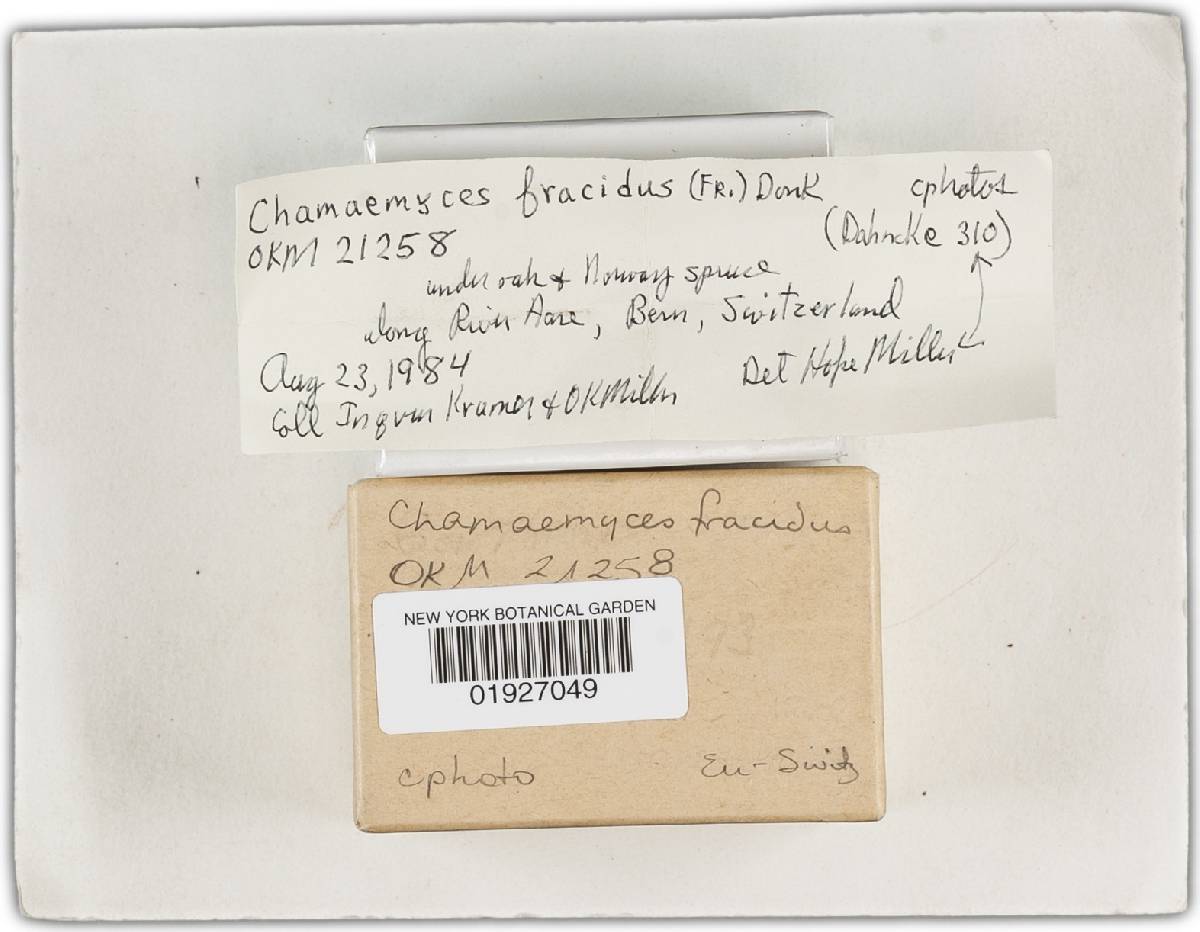 Chamaemyces fracidus (FR.) Donk cphotos
OKM 21258 (Dahncke 310)
under oak & Norway spruce
along River Aare, Bern, Switzerland
Aug 23, 1984 Det Hope Miller
Coll Kramer & OKMiller
Chamaemyces fracidus
OKM 21258
NEW YORK BOTANICAL GARDEN
01927049
cphoto Eu-Switz